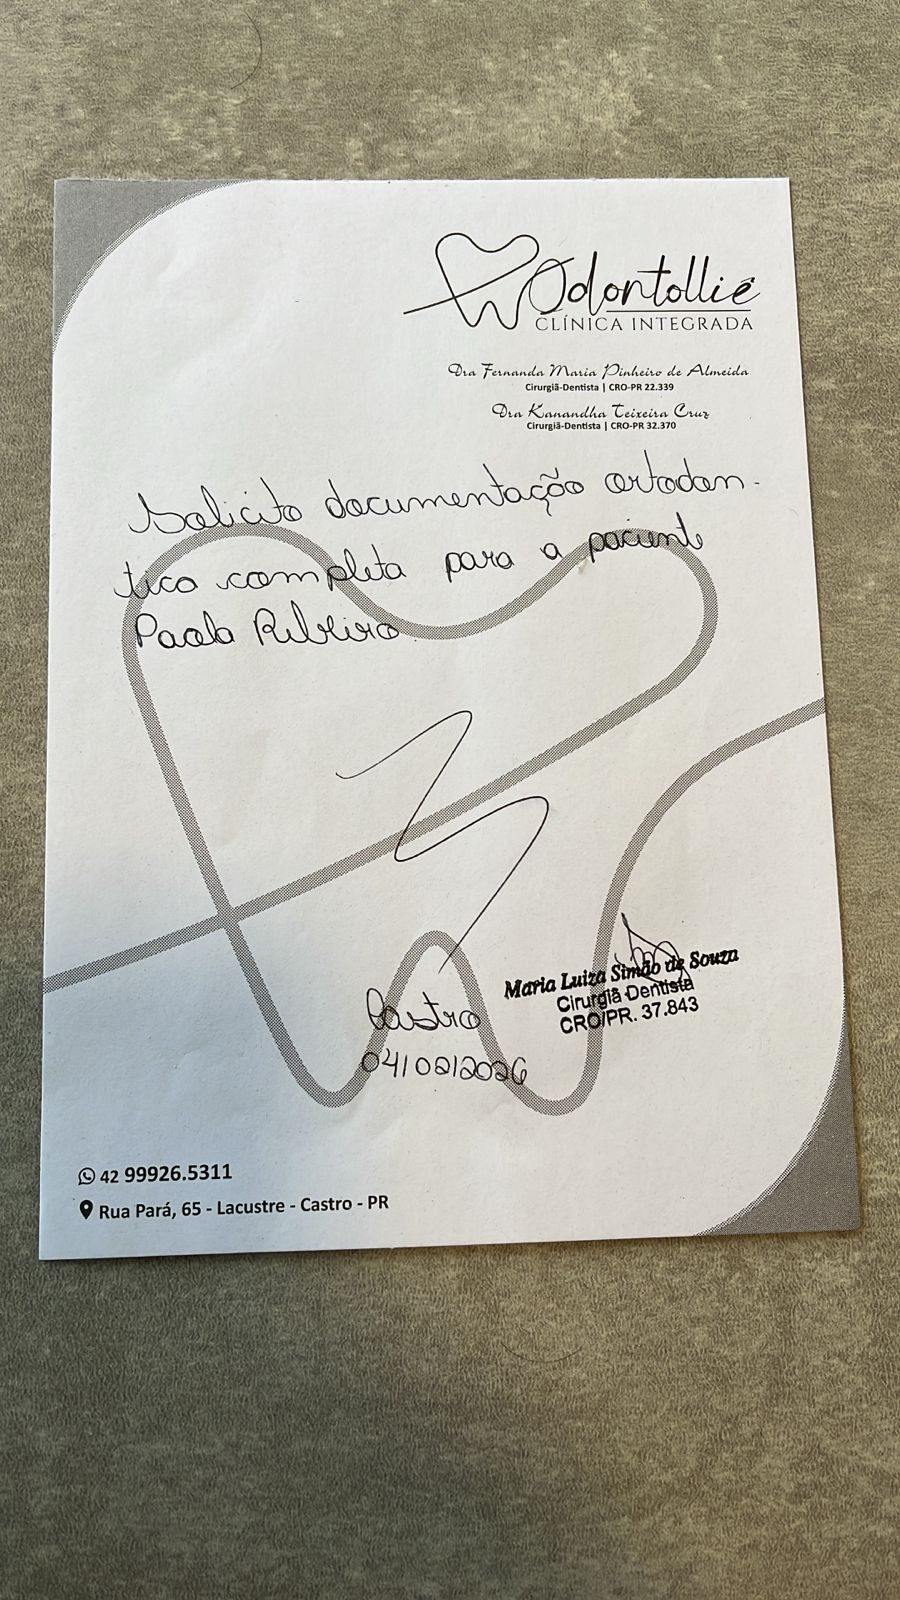 Odontollié
CLÍNICA INTEGRADA
Dra Fernanda Maria Pinheiro de Almeida
Cirurgiã-Dentista | CRO-PR 22.339
Dra Kanandha Teixeira Cruz
Cirurgiã-Dentista | CRO-PR 32.370
Solicito documentação ortodon-
tica completa para a paciente
Paola Ribeiro
Maria Luiza Simão de Souza
Cirurgiã Dentista
CRO/PR. 37.843
Castro
04/02/2026
42 99926.5311
Rua Pará, 65 - Lacustre - Castro - PR